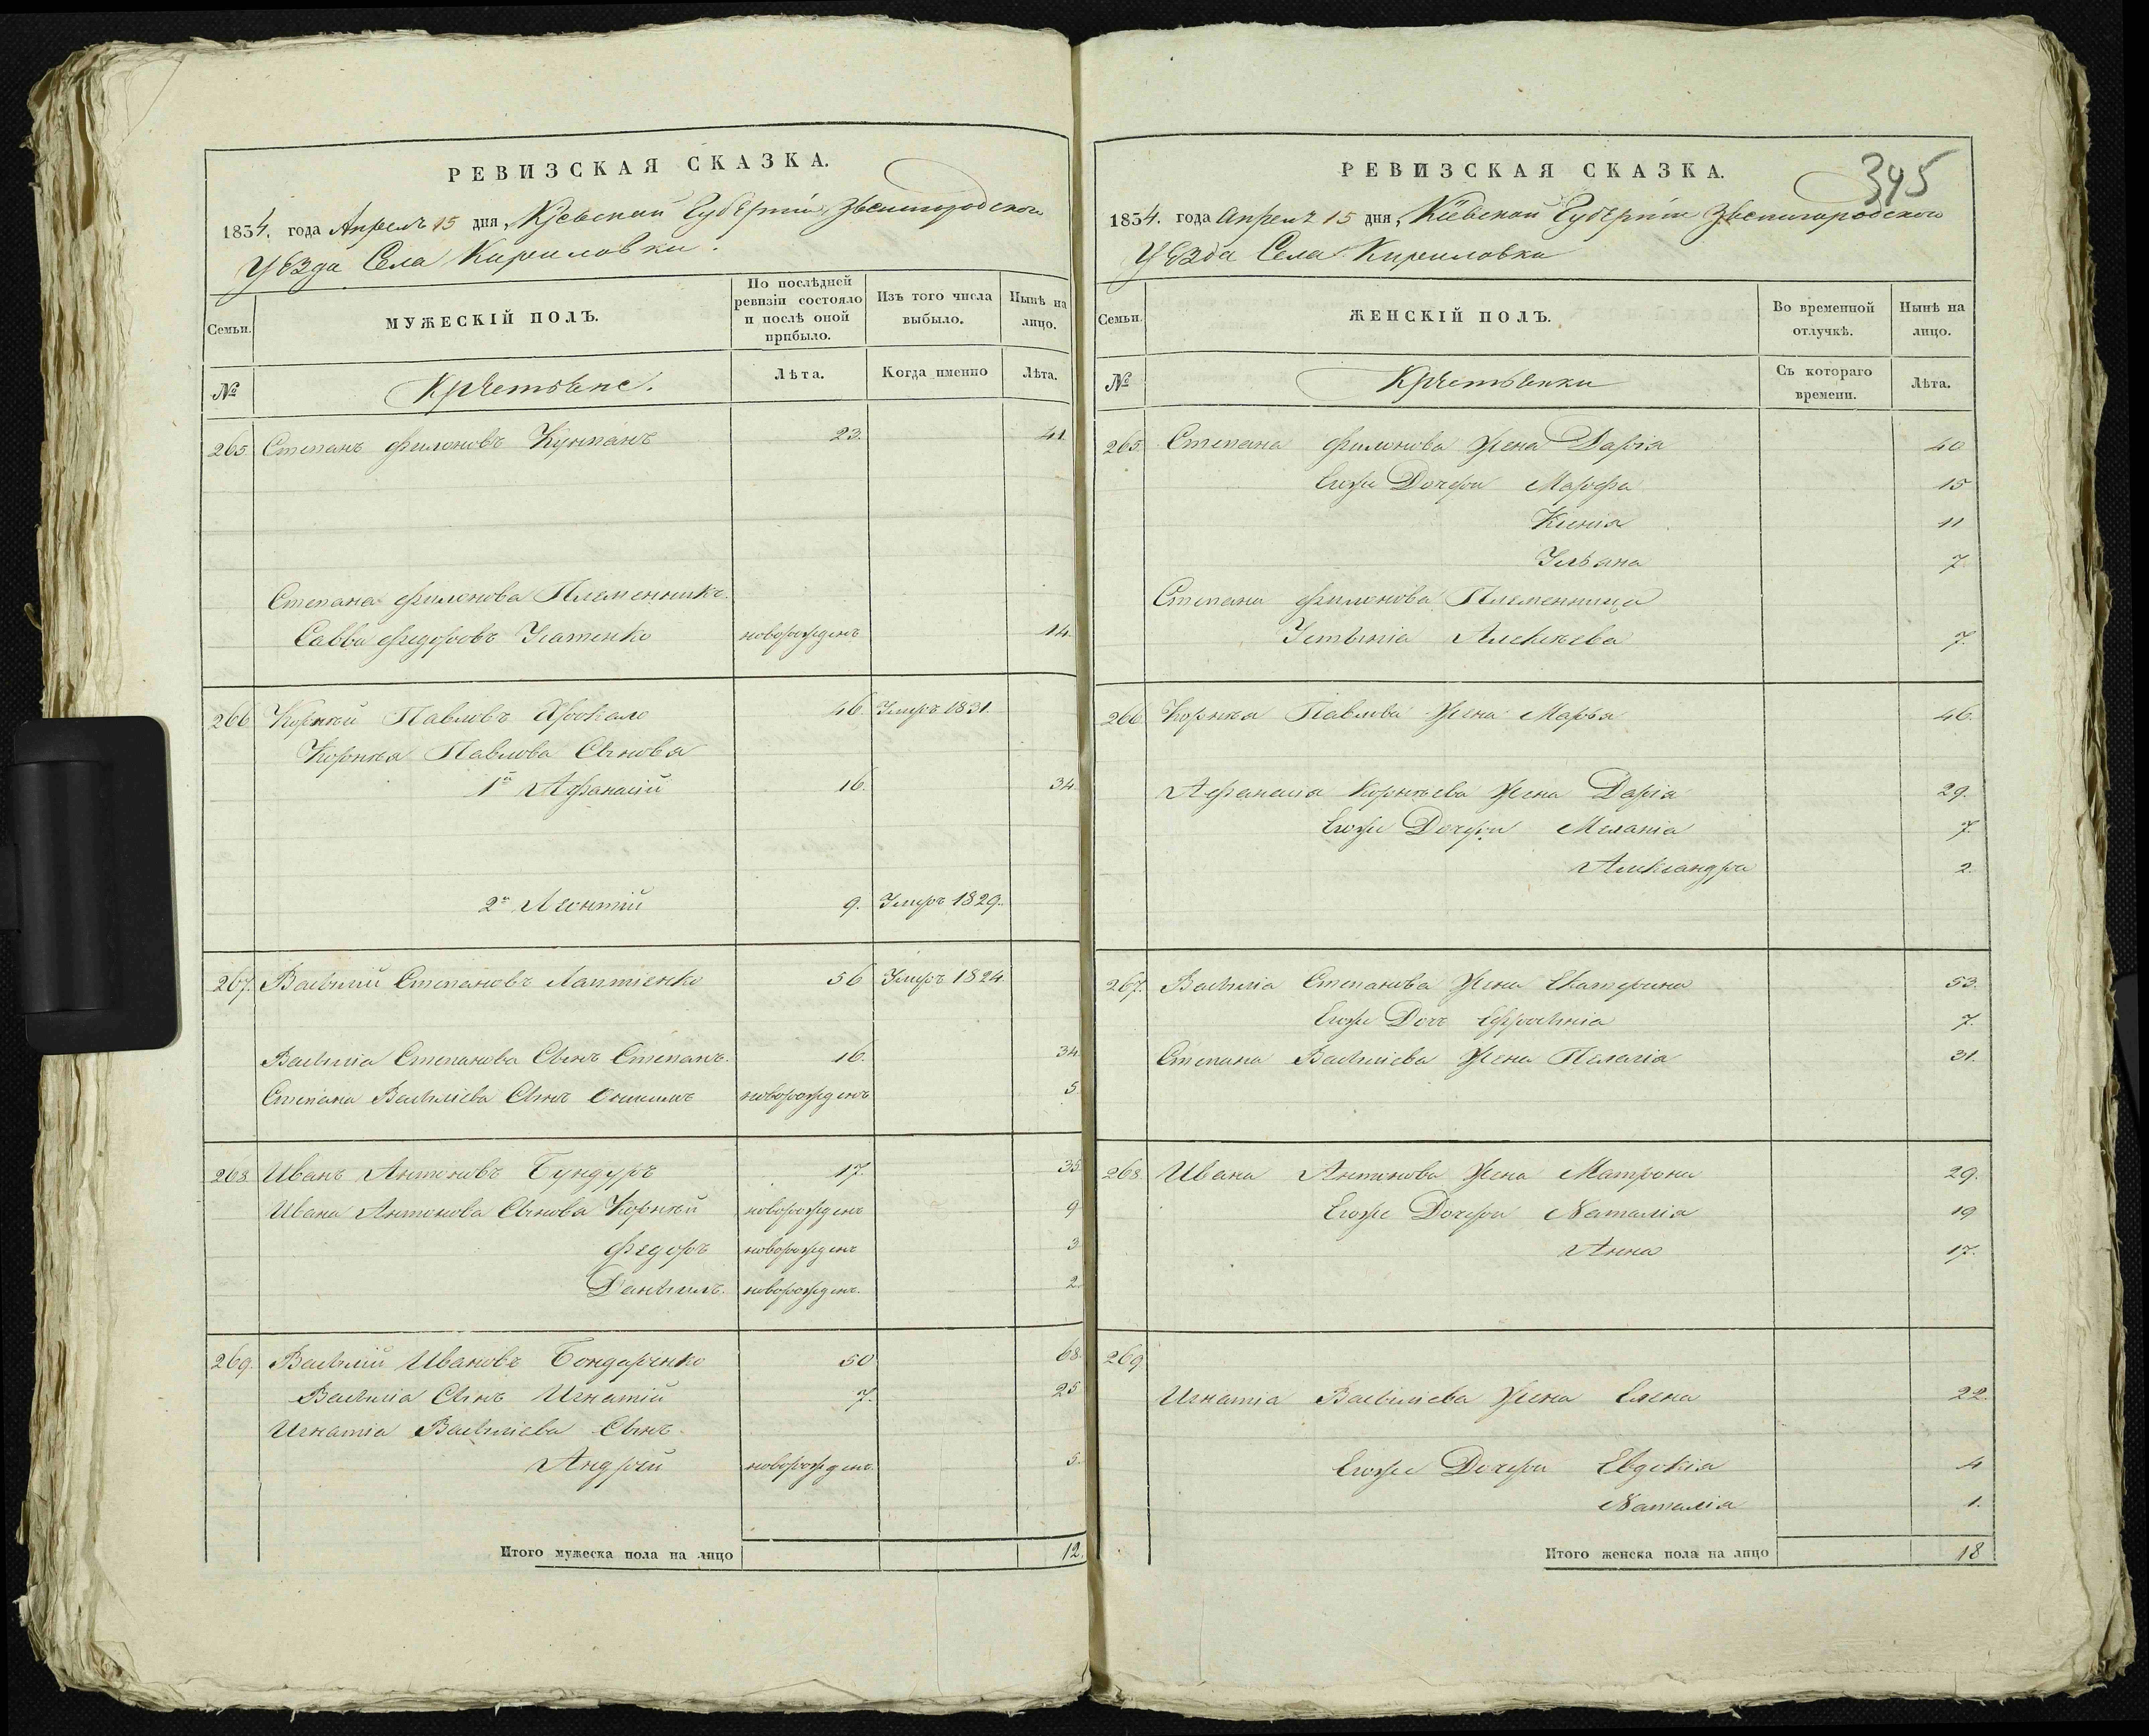 РЕВИЗСКАЯ СКАЗКА.
1834. года Апреля 15 дня, Кіевской Губерніи Звенигородского
Уѣзда Села Кириловки.
Семьи.
МУЖЕСКІЙ ПОЛЪ.
По послѣдней ревизіи состояло и послѣ оной прибыло.
Изъ того числа выбыло.
Нынѣ на лицо.
№
Крѣстьяне.
Лѣта.
Когда именно
Лѣта.
265 Степанъ Филоновъ 23. 41.
Степана Филонова Племенникъ.
Савва Федоровъ новорожденъ 14.
266 Корнѣй Павловъ 46. Умеръ 1831.
Корнѣя Павлова Сыновья
1й Афанасій 16. 34.
2й Леонтій 9. Умеръ 1829.
267. Василий Степановъ Лаптіенко 56 Умеръ 1824.
Василія Степанова Сынъ Степанъ. 16. 34.
Степана Василіева Сынъ новорожденъ 5.
268 Иванъ Антоновъ Бундуръ 17. 35.
Ивана Антонова Сыновья Корнѣй новорожденъ 9
Федоръ новорожденъ 3
Даніилъ. новорожденъ. 2.
269. Василій Ивановъ Бондаренко 50 68.
Василія Сынъ Игнатій 7. 25
Игнатія Василіева Сынъ.
Андрей новорожденъ. 5.
Итого мужеска пола на лицо 12.
345
РЕВИЗСКАЯ СКАЗКА.
1834. года Апреля 15 дня, Кіевской Губерніи Звенигородского
Уѣзда Села Кириловки
Семьи.
ЖЕНСКІЙ ПОЛЪ.
Во временной отлучкѣ.
Нынѣ на лицо.
№
Крѣстьянки
Съ котораго времени.
Лѣта.
265. Степана Филонова Жена Дарія 40
Егоже Дочери Марфа 15
Ксенія 11
Ульяна 7.
Степана Филонова Племенница
Устинія Алексѣева 7.
266 Корнѣя Павлова Жена Марья 46.
Афанасія Корнѣева Жена Дарія 29.
Егоже Дочери Меланія 7.
Александра 2.
267. Василія Степанова Жена Екатерина 53.
Егоже Дочь Ефросинія 7.
Степана Василіева Жена Пелагія 31.
268 Ивана Антонова Жена Матрона 29.
Егоже Дочери Наталія 19
Анна 17.
269
Игнатія Василіева Жена Елена 22.
Егоже Дочери Евдокія 4
Наталія 1.
Итого женска пола на лицо 18